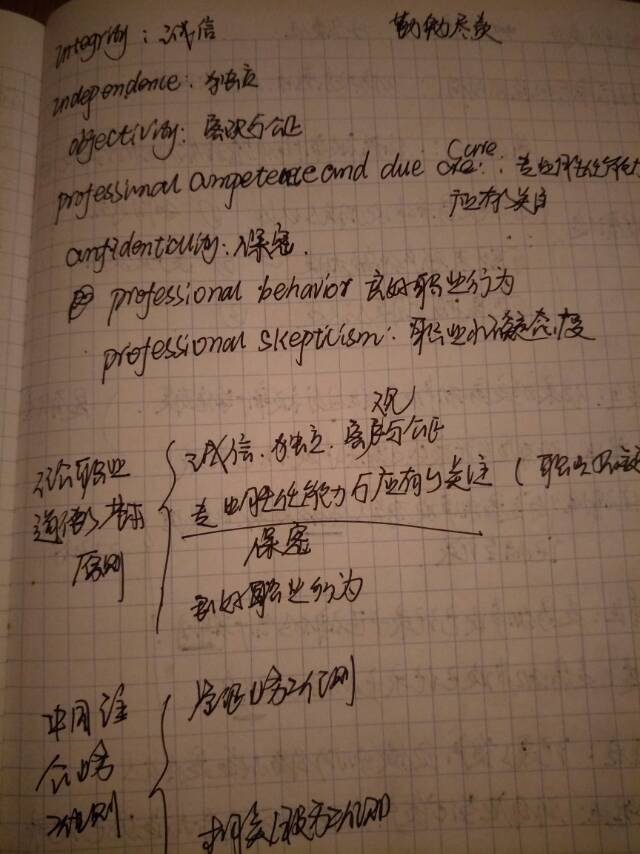 integrity: 诚信 勤勉尽责
independence: 独立
objectivity: 客观与公正
professional competence and due care: 专业胜任能力
应有关注
confidenticality: 保密.
professional behavior 良好职业行为
professional skepticism: 职业怀疑态度
观
诚信、独立、客观与公正
职业
专业胜任能力与应有的关注(职业怀疑
道德基本
保密
原则
良好职业行为
鉴证业务准则
中国注
会业务
准则
相关服务准则